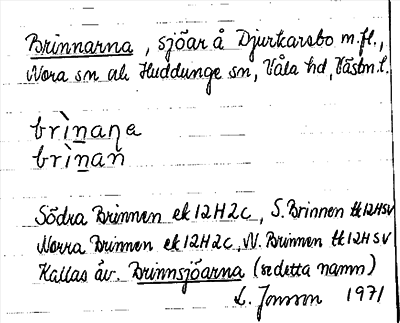 Brinnarna, sjöar å Djurkarsbo m.fl.,
Nora sn och Huddunge sn, Våla hd, Västm. l.
brìnaɳa
brìnan
Södra Brinnen ek 12H2c, S. Brinnen tk 12HSV
Norra Brinnen ek 12H2c, N. Brinnen tk 12HSV
Kallas äv. Brinnsjöarna (se detta namn)
L. Jonsson 1971